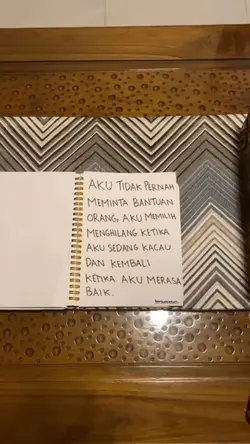 AKU TIDAK PERNAH
MEMINTA BANTUAN
ORANG, AKU MEMILIH
MENGHILANG KETIKA
AKU SEDANG KACAU
DAN KEMBALI
KETIKA AKU MERASA
BAIK.